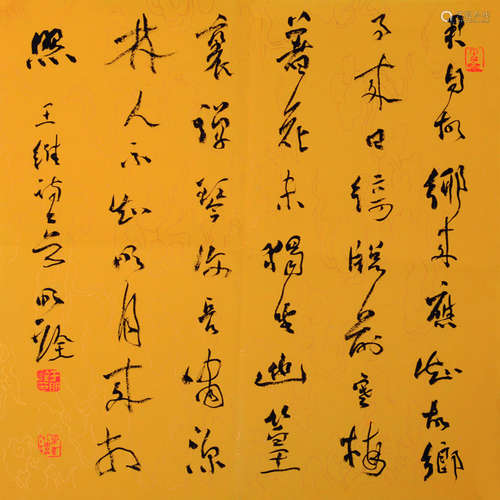 君自故鄉來應知故鄉
事來日綺窗前寒梅
著花未獨坐幽篁
裏彈琴復長嘯深
林人不知明月來相
照
王維詩二首明詮